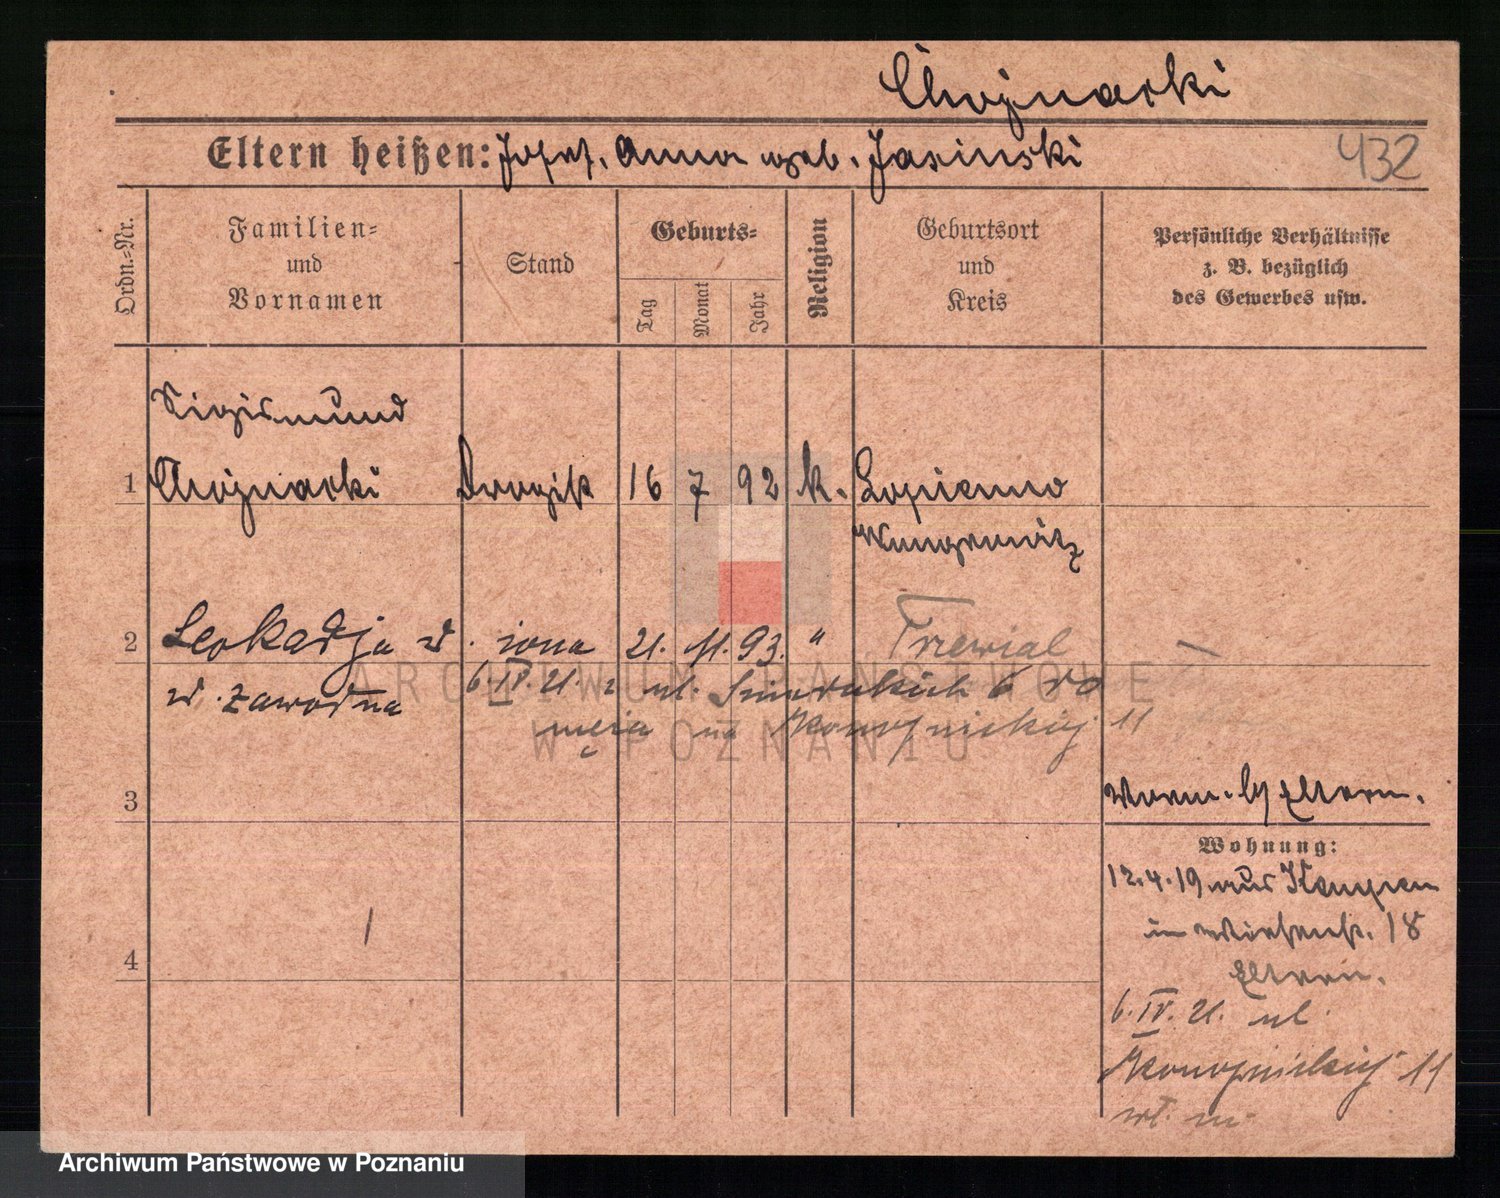 Chojnacki
Eltern heißen: Josef, Anna geb. Jasinski
432
Ordn.-Nr.
Familien-
und
Vornamen
Stand
Geburts-
Tag
Monat
Jahr
Religion
Geburtsort
und
Kreis
Persönliche Verhältnisse
z. B. bezüglich
des Gewerbes usw.
Sigismund
1 Chojnacki Drogist 16 7 92 k. Lopienno
Wongrowitz
2 Leokadja żona 21. 11. 93. " Trzewial
6.IV.21. z ul. Śniadeckich 6 do
męża na Konopnickiej 11
3
4
Worm. b/ Eltern.
Wohnung:
12.4.19 aus Kempen
in 18
Eltern.
6.IV.21. ul.
Konopnickiej 11
ARCHIWUM PAŃSTWOWE
W POZNANIU
Archiwum Państwowe w Poznaniu